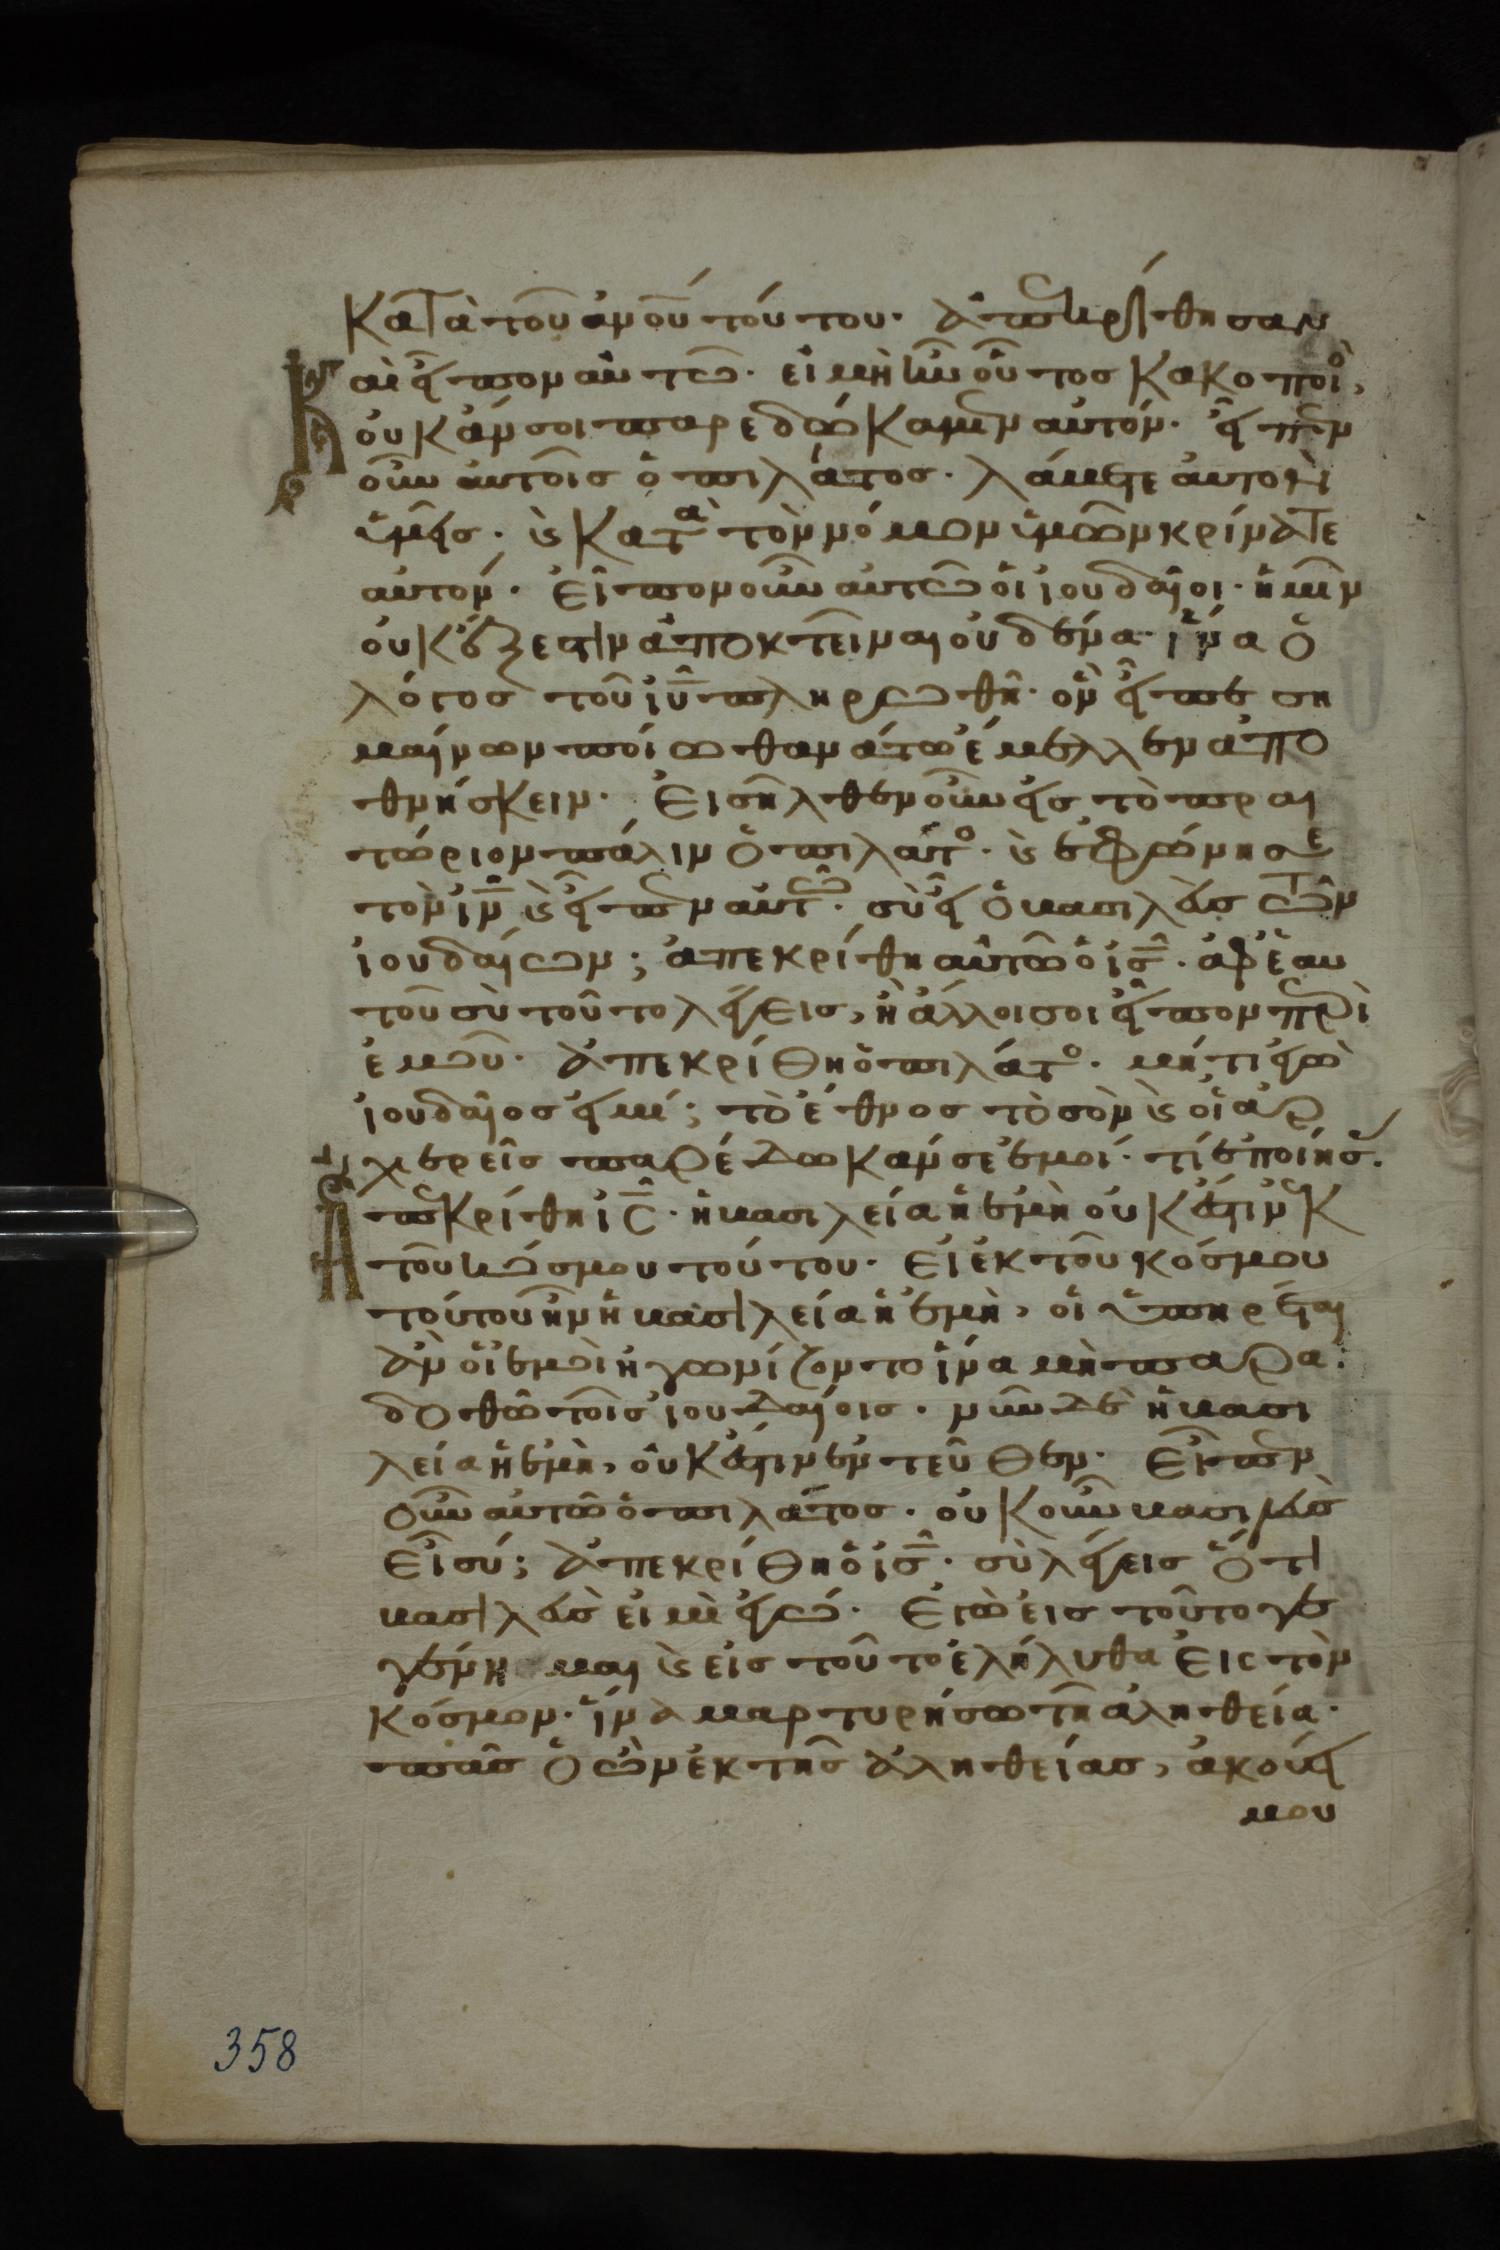 Κατὰ τοῦ ἀνοῦ τούτου· ἀπεκρίθησαν
Καὶ εἶπον αὐτῶ· εἰ μὴ ἦν οὗτος κακοποιὸ,
οὐκ ἄν σοι παρεδώκαμεν αὐτόν· εἶπεν
οὖν αὐτοῖς ὁ πιλάτος· λάβετε αὐτὸν
ὑμεῖς· ϗ κατὰ τὸν νόμον ὑμῶν κρίνατε
αὐτόν· Εἶπον οὖν αὐτῶ οἱ ἰουδαῖοι· ἡμῖν
οὐκ ἔξεστιν ἀποκτεῖναι οὐδένα· ἵνα ὁ
λόγος τοῦ ἰῦ πληρωθῆ· ὃν εἶπε ση
μαίνων ποίω θανάτω ἔμελλεν ἀπο
θνήσκειν· Εἰσῆλθεν οὖν εἰς τὸ πραι
τώριον πάλιν ὁ πιλάτο· ϗ ἐφώνησε
τὸν ἰν ϗ εἶπεν αὐτῶ· σὺ εἶ ὁ βασιλεὺς τῶν
ἰουδαίων; ἀπεκρίθη αὐτῶ ὁ ἰς· ἀφ' ἑαυ
τοῦ σὺ τοῦτο λέγεις, ἢ ἄλλοι σοι εἶπον περὶ
ἐμοῦ· ἀπεκρίθη ὁ πιλάτο· μήτι ἐγὼ
ἰουδαῖος εἰμί; τὸ ἔθνος τὸ σὸν ϗ οἱ ἀρ
χιερεῖς παρέδωκάν σε ἐμοί· τί ἐποίησ.
Ἀπεκρίθη ἰς· ἡ βασιλεία ἡ ἐμὴ οὐκ ἔστιν ἐκ
τοῦ κόσμου τούτου· Εἰ ἐκ τοῦ κόσμου
τούτου ἦν ἡ βασιλεία ἡ ἐμὴ, οἱ ὑπηρέται
ἂν οἱ ἐμοὶ ἠγωνίζοντο ἵνα μὴ παρα
δοθῶ τοῖς ἰουδαίοις· νῦν δὲ ἡ βασι
λεία ἡ ἐμὴ, οὐκ ἔστιν ἐντεῦθεν· Εἶπεν
οὖν αὐτῶ ὁ πιλάτος· οὐκοῦν βασιλεὺς
Εἶ σύ; ἀπεκρίθη ὁ ἰς· σὺ λέγεις ὅτι
βασιλεὺς εἰμὶ ἐγώ· Ἐγὼ εἰς τοῦτο γε
γένημαι ϗ εἰς τοῦτο ἐλήλυθα Εἰς τὸν
κόσμον· ἵνα μαρτυρήσω τῆ ἀληθεία·
πᾶς ὁ ὢν ἐκ τῆς ἀληθείας, ἀκούει
μου
358